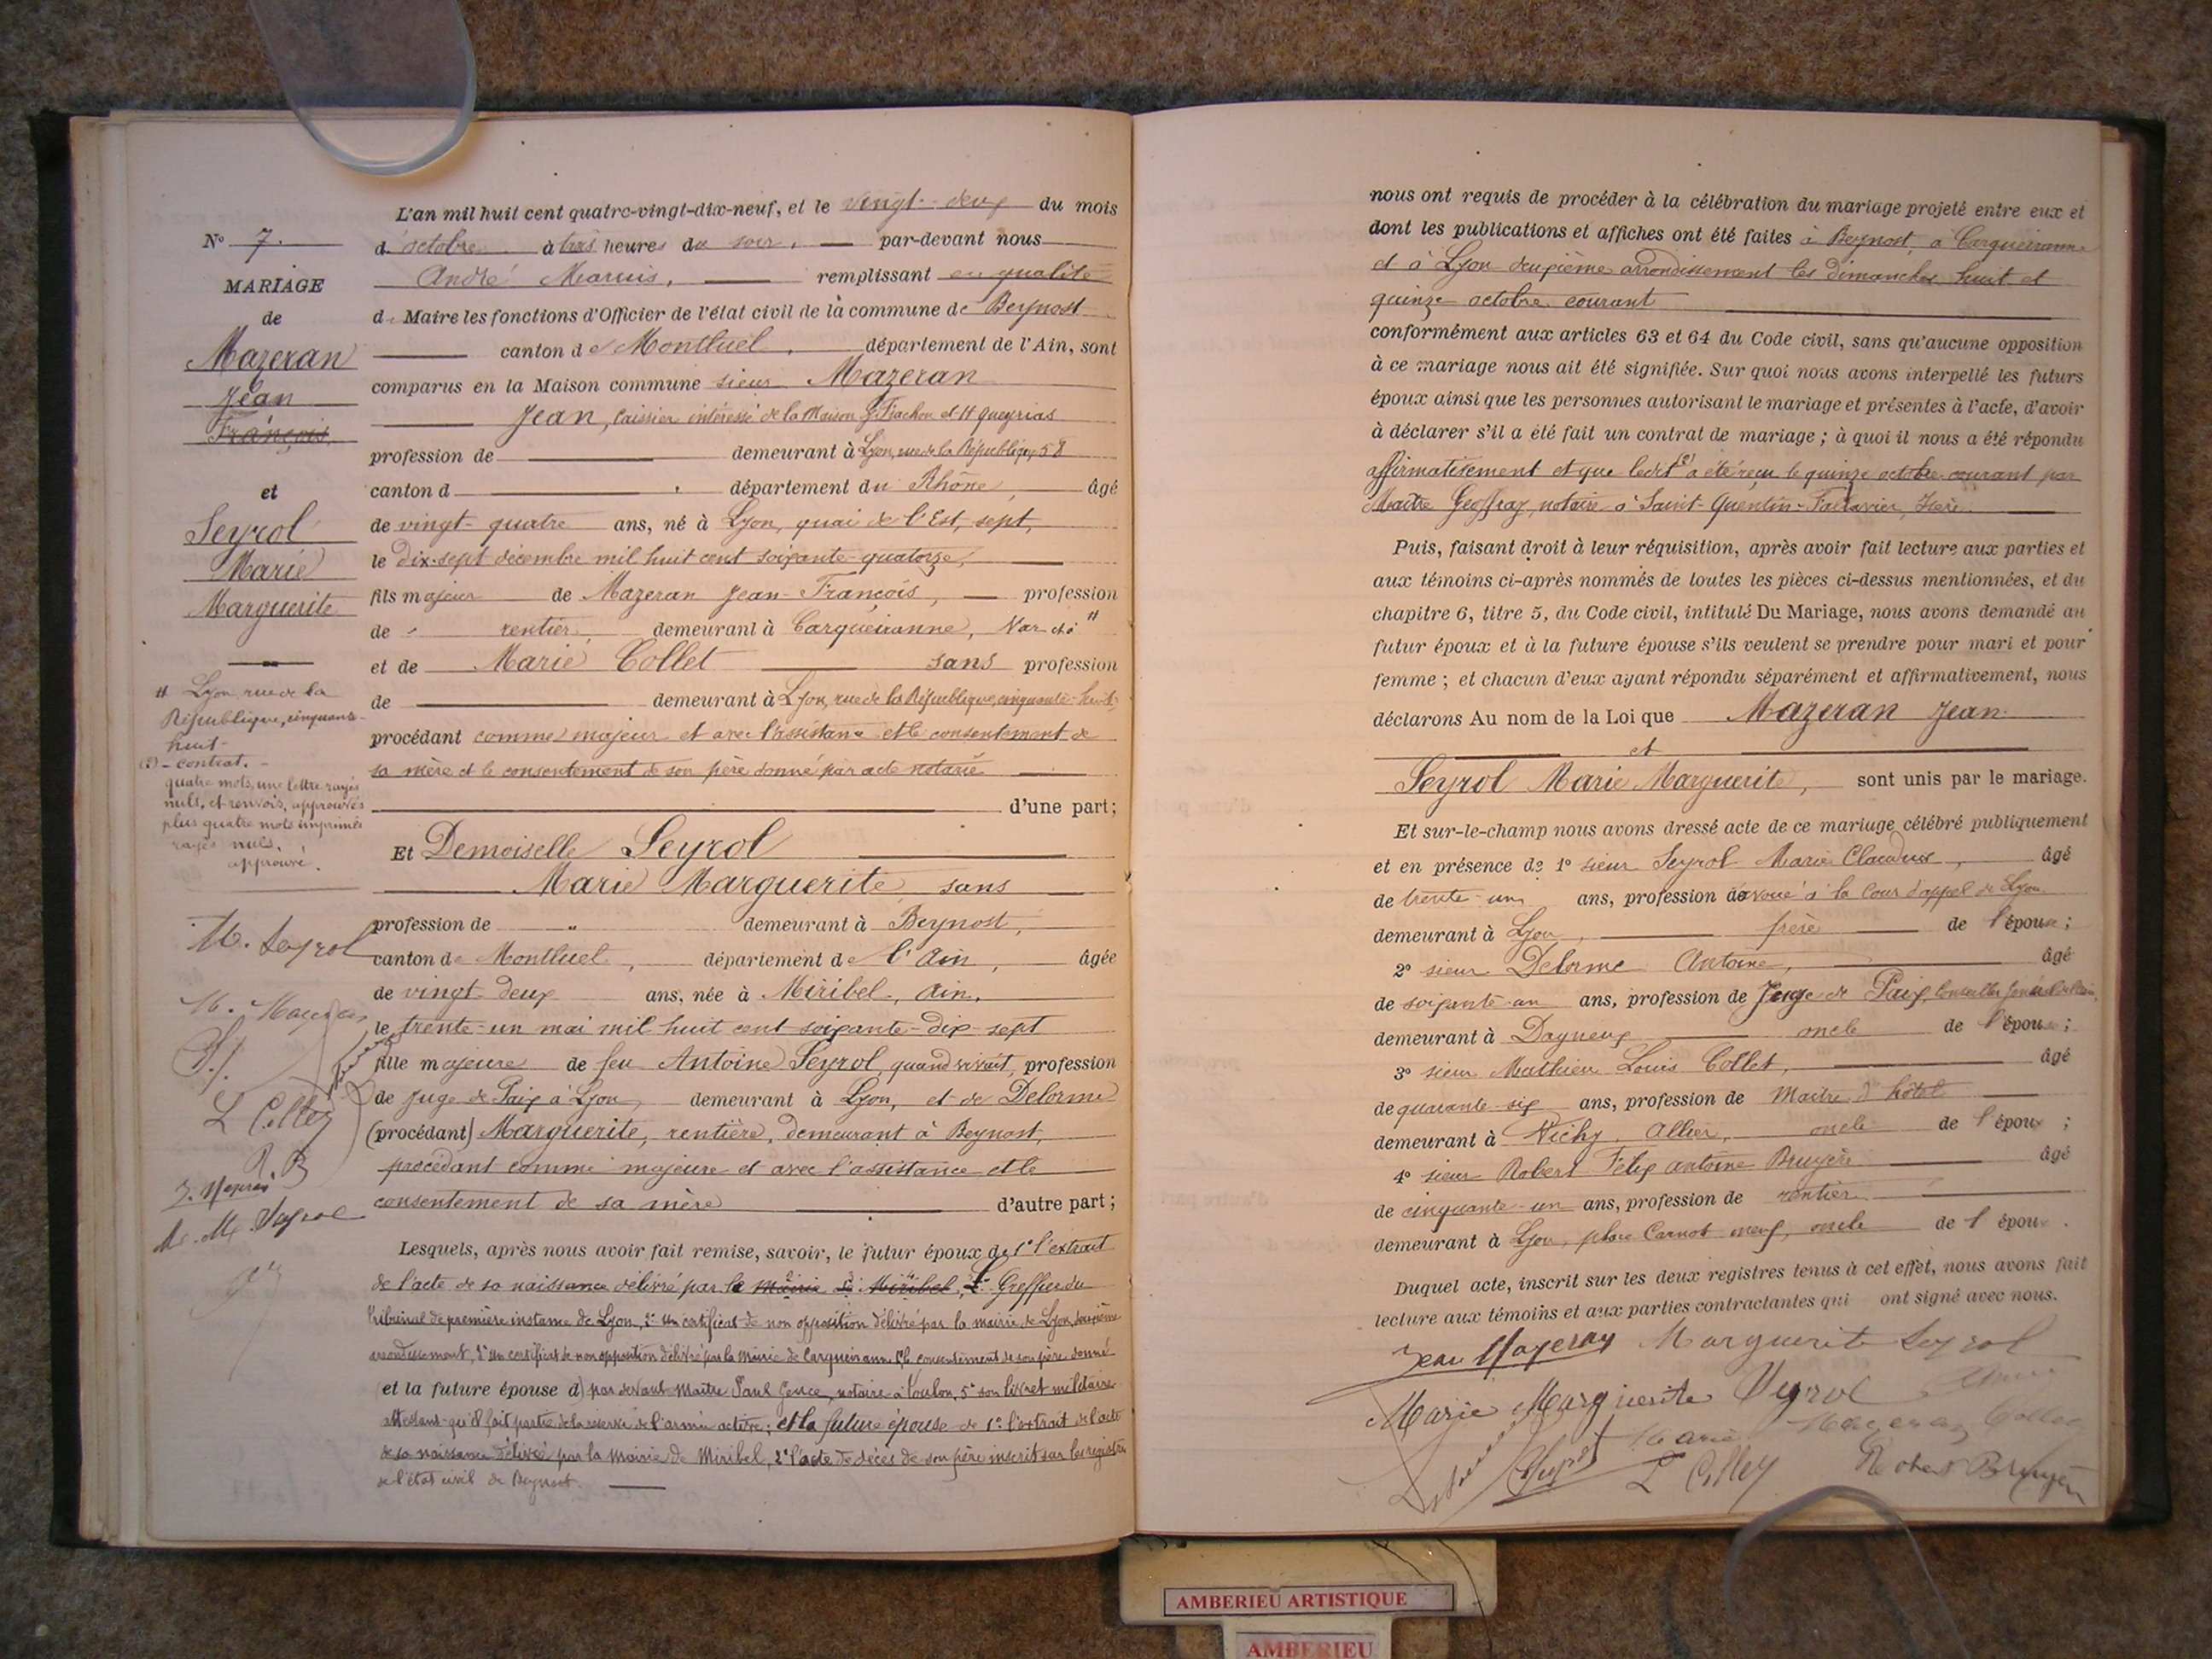 L'an mil huit cent quatre-vingt-dix-neuf, et le vingt-deux du mois
d'octobre à trois heures du soir, par-devant nous
André Marius, remplissant en qualité
de Maire les fonctions d'Officier de l'état civil de la commune de Beynost
canton de Montluel, département de l'Ain, sont
comparus en la Maison commune sieur Mazeran
Jean, caissier intéressé de la Maison Fiachon et H Queyrias
profession de demeurant à Lyon, rue de la République, 58
canton d département du Rhône, âgé
de vingt-quatre ans, né à Lyon, quai de l'Est, sept,
le dix-sept décembre mil huit cent soixante-quatorze,
fils majeur de Mazeran Jean-François, profession
de rentier, demeurant à Carqueiranne, Var
et de Marie Collet sans profession
de demeurant à Lyon, rue de la République, cinquante-huit,
procédant comme majeur et avec l'assistance et le consentement de
sa mère et le consentement de son père donné par acte notarié
d'une part;
Et Demoiselle Seyrol
Marie Marguerite, sans
profession de " demeurant à Beynost,
canton de Montluel, département de l'Ain, âgée
de vingt-deux ans, née à Miribel, Ain,
le trente-un mai mil huit cent soixante-dix-sept
fille majeure de feu Antoine Seyrol, quand vivait, profession
de Juge de Paix à Lyon, demeurant à Lyon, et de Delorme
(procédant) Marguerite, rentière, demeurant à Beynost,
procédant comme majeure et avec l'assistance et le
consentement de sa mère d'autre part;
Lesquels, après nous avoir fait remise, savoir, le futur époux de 1° l'extrait
de l'acte de sa naissance délivré par le Mairie de Miribel, Le Greffier du
Tribunal de première instance de Lyon, 2° un certificat de non opposition délivré par la mairie de Lyon, deuxième
arrondissement, 3° un certificat de non opposition délivré par la Mairie de Carqueiranne consentement de son père donné
et la future épouse d) par devant Maître Paul notaire à Toulon, 5° son livret militaire
attestant qu'il fait partie de la réserve de l'armée active; et la future épouse de 1° l'extrait de l'acte
de sa naissance délivré par la Mairie de Miribel, 2° l'acte de décès de son père inscrit sur les registres
de l'état civil de Beynost.
N° 7.
MARIAGE
de
Mazeran
Jean
François
et
Seyrol
Marie
Marguerite
# Lyon, rue de la
République, cinquante-
huit-
(2) - contrat. -
quatre mots, une lettre rayés
nuls, et renvois, approuvés
plus quatre mots imprimés
rayés nuls.
approuvé.
M. Seyrol
L Collet
R. B
M. M. Seyrol
nous ont requis de procéder à la célébration du mariage projeté entre eux et
dont les publications et affiches ont été faites à Beynost, à Carqueiranne
et à Lyon deuxième arrondissement les dimanches huit et
quinze octobre courant
conformément aux articles 63 et 64 du Code civil, sans qu'aucune opposition
à ce mariage nous ait été signifiée. Sur quoi nous avons interpellé les futurs
époux ainsi que les personnes autorisant le mariage et présentes à l'acte, d'avoir
à déclarer s'il a été fait un contrat de mariage; à quoi il nous a été répondu
affirmativement et que ledit (2) a été reçu le quinze octobre courant par
Maître Geoffray, notaire à Saint-Quentin-Fallavier, Isère.
Puis, faisant droit à leur réquisition, après avoir fait lecture aux parties et
aux témoins ci-après nommés de toutes les pièces ci-dessus mentionnées, et du
chapitre 6, titre 5, du Code civil, intitulé Du Mariage, nous avons demandé au
futur époux et à la future épouse s'ils veulent se prendre pour mari et pour
femme; et chacun d'eux ayant répondu séparément et affirmativement, nous
déclarons Au nom de la Loi que Mazeran Jean
et
Seyrol Marie Marguerite, sont unis par le mariage.
Et sur-le-champ nous avons dressé acte de ce mariage célébré publiquement
et en présence de 1° sieur Seyrol Marie Claudius, âgé
de trente-un ans, profession d'avoué à la Cour d'appel de Lyon
demeurant à Lyon, frère de l'épouse;
2° sieur Delorme Antoine, âgé
de soixante-un ans, profession de Juge de Paix, Conseiller
demeurant à Dagneux oncle de l'épouse;
3° sieur Mathieu Louis Collet, âgé
de quarante-six ans, profession de Maître d'hôtel
demeurant à Vichy, Allier, oncle de l'époux;
4° sieur Robert Félix Antoine Bruyère âgé
de cinquante-un ans, profession de rentier
demeurant à Lyon, place Carnot neuf, oncle de l'époux.
Duquel acte, inscrit sur les deux registres tenus à cet effet, nous avons fait
lecture aux témoins et aux parties contractantes qui ont signé avec nous.
Jean Mazeran Marguerite Seyrol
Marie Marguerite Seyrol
Marie Mazeran Collet
L Collet Robert Bruyère
AMBERIEU ARTISTIQUE
AMBERIEU